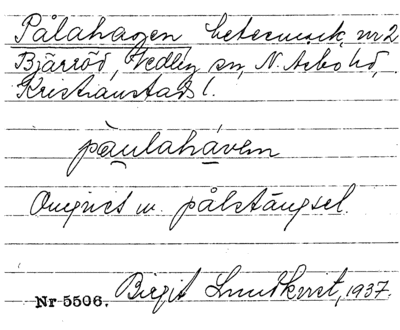 Pålahagen, betesmark, nr 2
Bjärröd, Vedby sn, N. Åsbo hd,
Kristianstads l.
pàulahávem
Omgivet m. pålstängsel.
Nr 5506. Birgit Lundkvist, 1937.